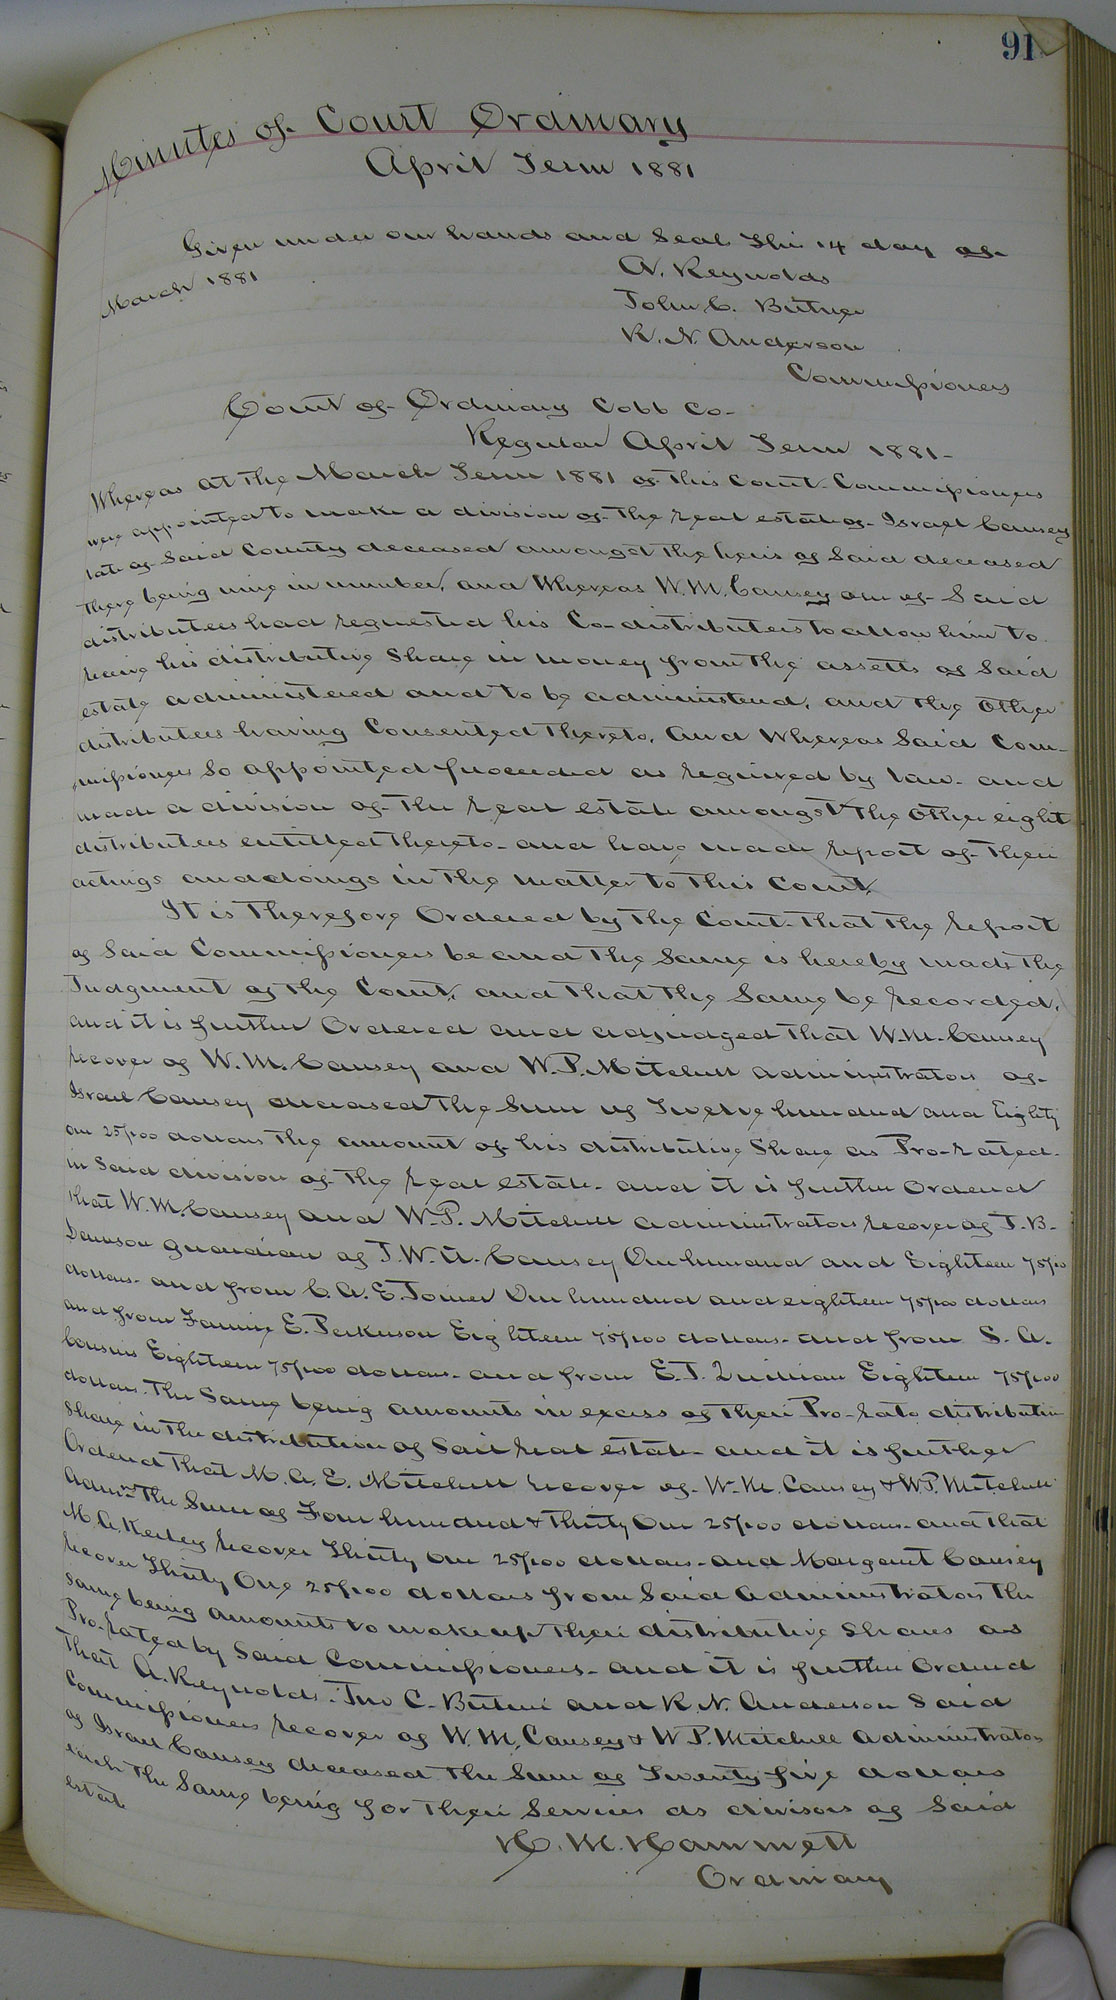 91
Minutes of Court Ordinary
April Term 1881
Given under our hands and Seal This 14 day of
March 1881
A. Reynolds
John C. Butner
R. N. Anderson
Commissioners
Court of Ordinary Cobb Co-
Regular April Term 1881-
Whereas at the March Term 1881 of This Court Commissioners
were appointed to make a division of The real estate of Israel Causey
late of Said County deceased amongst The heirs of Said deceased
There being nine in number, and Whereas W. M. Causey one of Said
distributees had requested his Co-distributees to allow him to
his distributive Share in money from The assetts of Said
estate administered and to be administered, and The other
distributees having Consented Thereto, And Whereas Said Com-
missioners So appointed proceeded as required by law and
made a division of The real estate amongst The other eight
distributees entitled Thereto- and have made report of Their
actings and doings in The matter to This Court.
It is Therefore Ordered by The Court That The report
of Said Commissioners be and The Same is hereby made The
Judgment of The Court, and That The Same be recorded,
and it is further Ordered and adjudged That W. M. Causey
recover of W. M. Causey and W. P. Mitchell administrators of
Israel Causey deceased The Sum of Twelve hundred and Eighty
one 25/100 dollars The amount of his distributive Share as Pro-rated
in Said division of The real estate- and it is further Ordered
That W. M. Causey and W. P. Mitchell administrators recover of J. B.
guardian of J. W. A. Causey One hundred and Eighteen 75/100
dollars- and from C. A. E. Joiner One hundred and eighteen 75/100 dollars
and from Fannie E. Perkinson Eighteen 75/100 dollars- and from S. A.
Eighteen 75/100 dollars- and from E. J. Quillian Eighteen 75/100
dollars- The Same being amounts in excess of Their Pro-rata distributive
Share in The distribution of Said real estate- and it is further
Ordered That M. A. E. Mitchell recover of W. M. Causey & W. P. Mitchell
Admrs The Sum of Four hundred & Thirty One 25/100 dollars- and That
M. A. recover Thirty One 25/100 dollars- and Margaret Causey
recover Thirty One 25/100 dollars from Said Administrators The
Same being amounts to make up Their distributive Shares as
Pro-rated by Said Commissioners- and it is further Ordered
That A. Reynolds, Jno C. Butner and R. N. Anderson Said
Commissioners recover of W. M. Causey & W. P. Mitchell Administrators
of Israel Causey deceased The Sum of Twenty five dollars
each The Same being for Their Services as divisors of Said
estate
H. M. Hammett
Ordinary